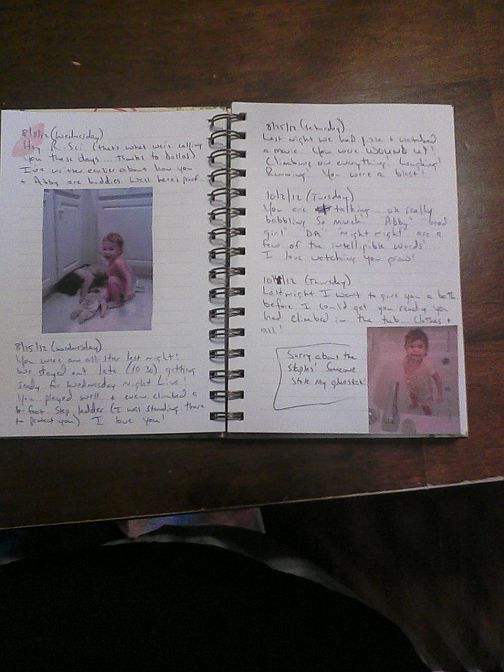 8/8/12 (Wednesday)
Hey R. Sci. (that's what we're calling
you these days... thanks to Dallas)
I've written about how you
+ Abby are buddies. Well here's proof
8/15/12 (Wednesday)
You were an all-star last night!
We stayed out late (10:30) getting
ready for Wednesday Night Live!
You played well + even climbed a
6-foot step ladder (I was standing there
to protect you) I love you!
8/25/12 (Saturday)
Last night we had pizza + watched
a movie. You were WOUND UP!
Climbing on everything! Laughing!
Running! You were a blast!
10/2/12 (Tuesday)
You are talking... ok really
babbling so much. "Abby" "good
girl" "DA" "night night" are a
few of the intelligible words
I love watching you grow!
(Thursday)
Last night I went to give you a bath
before I could get you ready you
had climbed in the tub. Clothes +
all!
Sorry about the
staples! Someone
stole my gluestick!